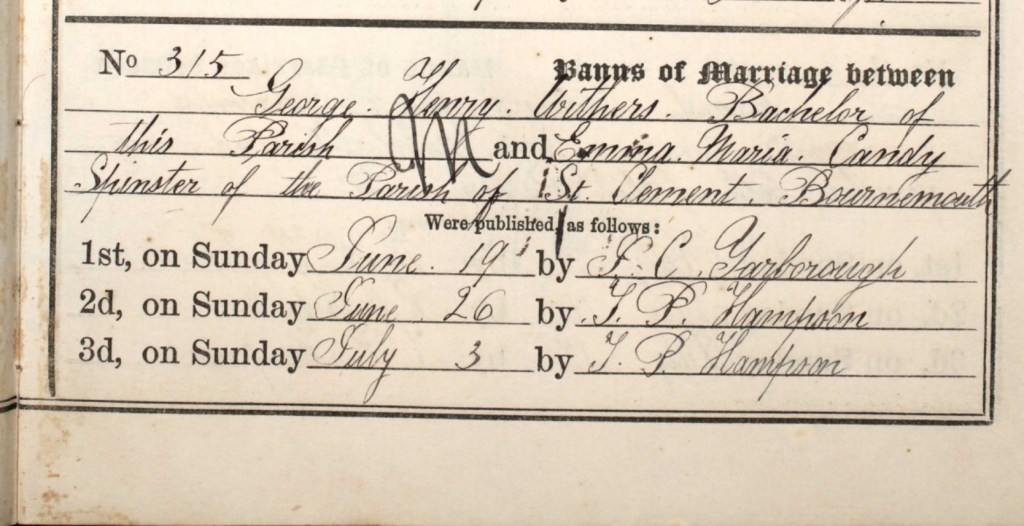 No 315 Banns of Marriage between
George Henry Withers. Bachelor of
this Parish and Emma. Maria. Candy
Spinster of the Parish of St. Clement. Bournemouth
Were published as follows:
1st, on Sunday June. 19 by F. C. Yarborough
2d, on Sunday June 26 by T. P. Hampson
3d, on Sunday July 3 by T. P. Hampson